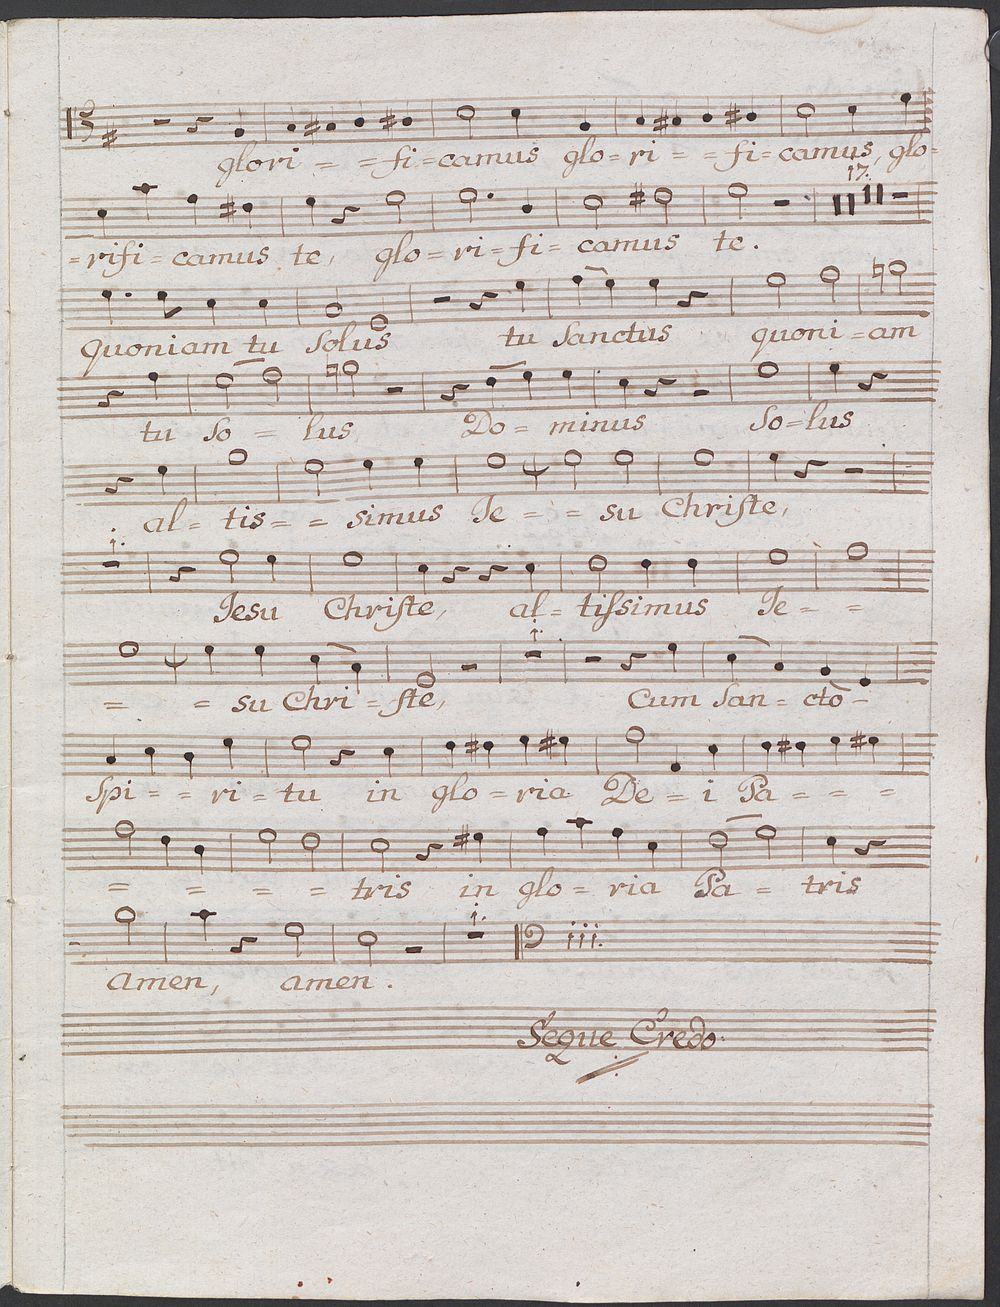 glori = = fi = camus glo = ri = = fi = camus, glo =
17.
= rifi = camus te, glo = ri = fi = camus te.
quoniam tu solus tu sanctus quoni = am
tu so = lus Do = minus so = lus
al = tis = = simus Ie = = su Chriſte,
1.
Iesu Chriſte, al = tiſsimus Ie = =
1.
= = su Chri = ſte, Cum san = cto =
Spi = = ri = tu in glo = ria De = i Pa = = =
= = = = tris in glo = ria Pa = tris
1.
amen, amen.
Seque Credo.